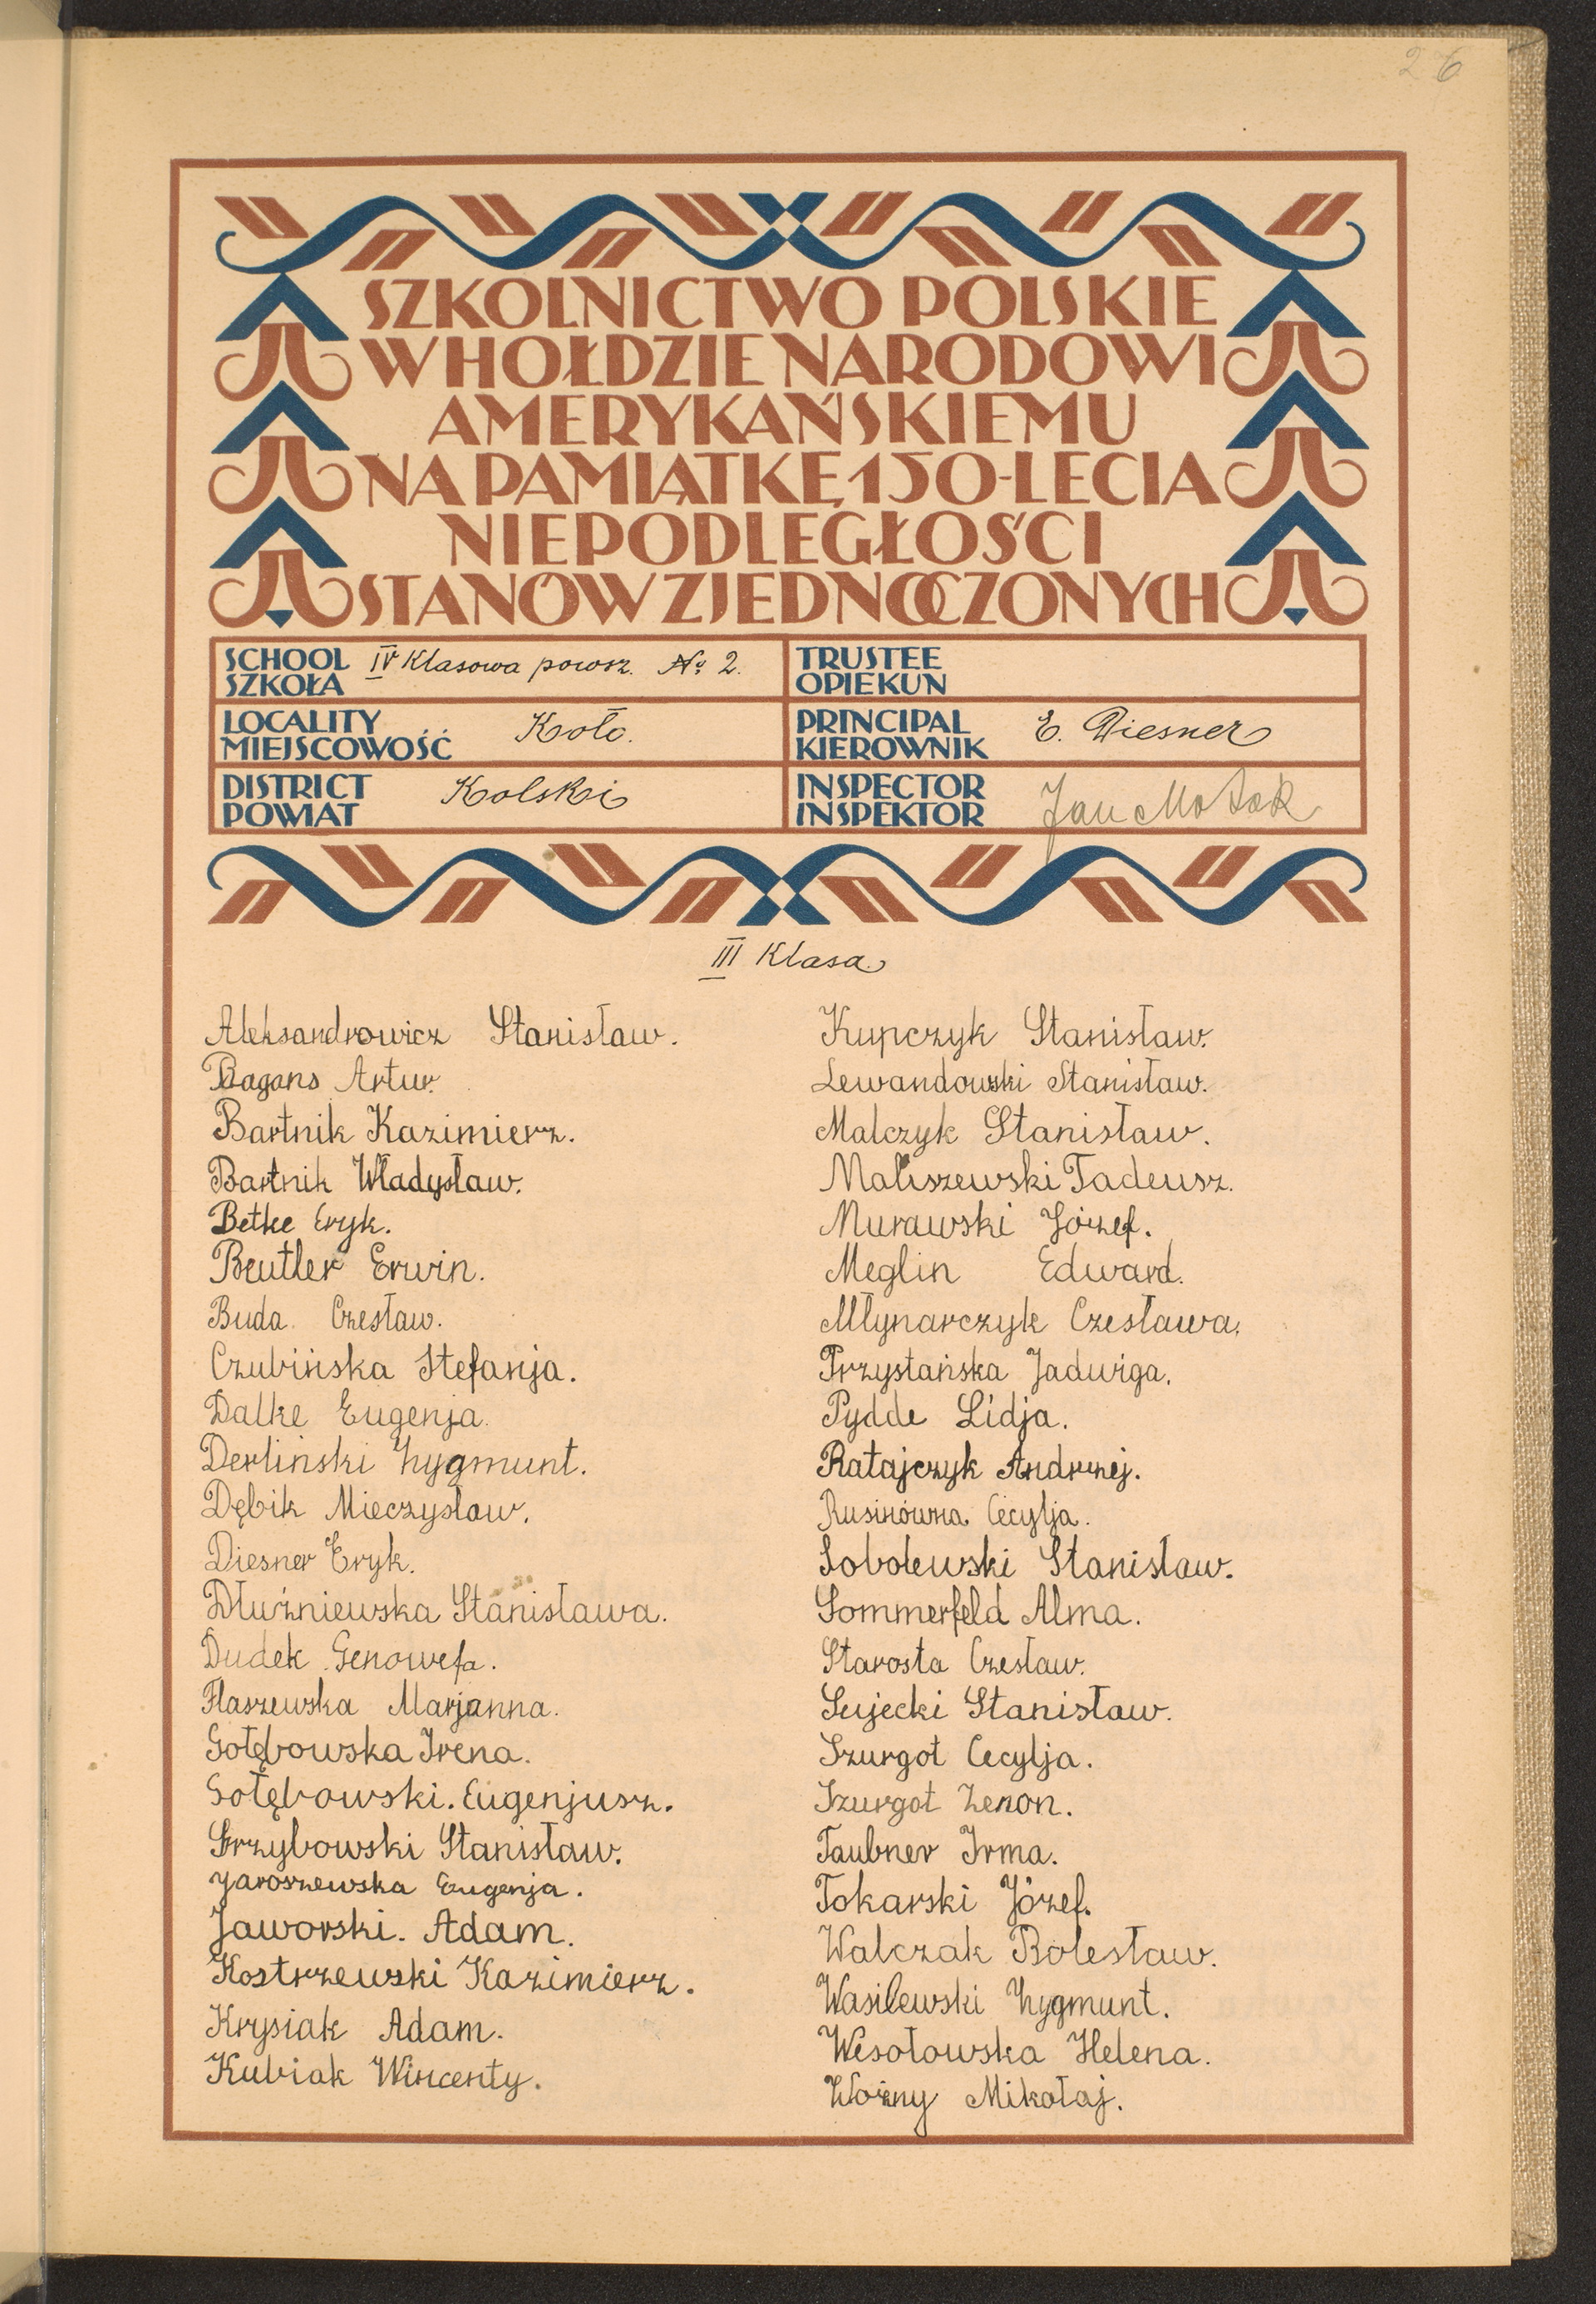 26
SZKOLNICTWO POLSKIE
W HOŁDZIE NARODOWI
AMERYKAŃSKIEMU
NA PAMIĄTKĘ 150-LECIA
NIEPODLEGŁOŚCI
STANÓW ZJEDNOCZONYCH
SCHOOL
SZKOŁA
IV Klasowa powsz. № 2.
TRUSTEE
OPIEKUN
LOCALITY
MIEJSCOWOŚĆ
Koło.
PRINCIPAL
KIEROWNIK
E. Diesner
DISTRICT
POWIAT
Kolski
INSPECTOR
INSPEKTOR
Jan
III Klasa
Aleksandrowicz Stanisław.
Bagans Artur.
Bartnik Kazimierz.
Bartnik Władysław.
Betke Eryk.
Beutler Erwin.
Buda Czesław.
Czubińska Stefanja.
Dalke Eugenja.
Derliński Zygmunt.
Dębik Mieczysław.
Diesner Eryk.
Dłużniewska Stanisława.
Dudek Genowefa.
Flaszewska Marjanna.
Gołębowska Irena.
Gołębowski. Eugenjusz.
Grzybowski Stanisław.
Jaroszewska Eugenja.
Jaworski. Adam.
Kostrzewski Kazimierz.
Krysiak Adam.
Kubiak Wincenty.
Kupczyk Stanisław.
Lewandowski Stanisław.
Malczyk Stanisław.
Maliszewski Tadeusz.
Murawski Józef.
Meglin Edward.
Młynarczyk Czesława.
Przystańska Jadwiga.
Pydde Lidja.
Ratajczyk Andrzej.
Rusinówna Cecylja.
Sobolewski Stanisław.
Sommerfeld Alma.
Starosta Czesław.
Sujecki Stanisław.
Szurgot Cecylja.
Szurgot Zenon.
Taubner Irma.
Tokarski Józef.
Walczak Bolesław.
Wasilewski Zygmunt.
Wesołowska Helena.
Woźny Mikołaj.